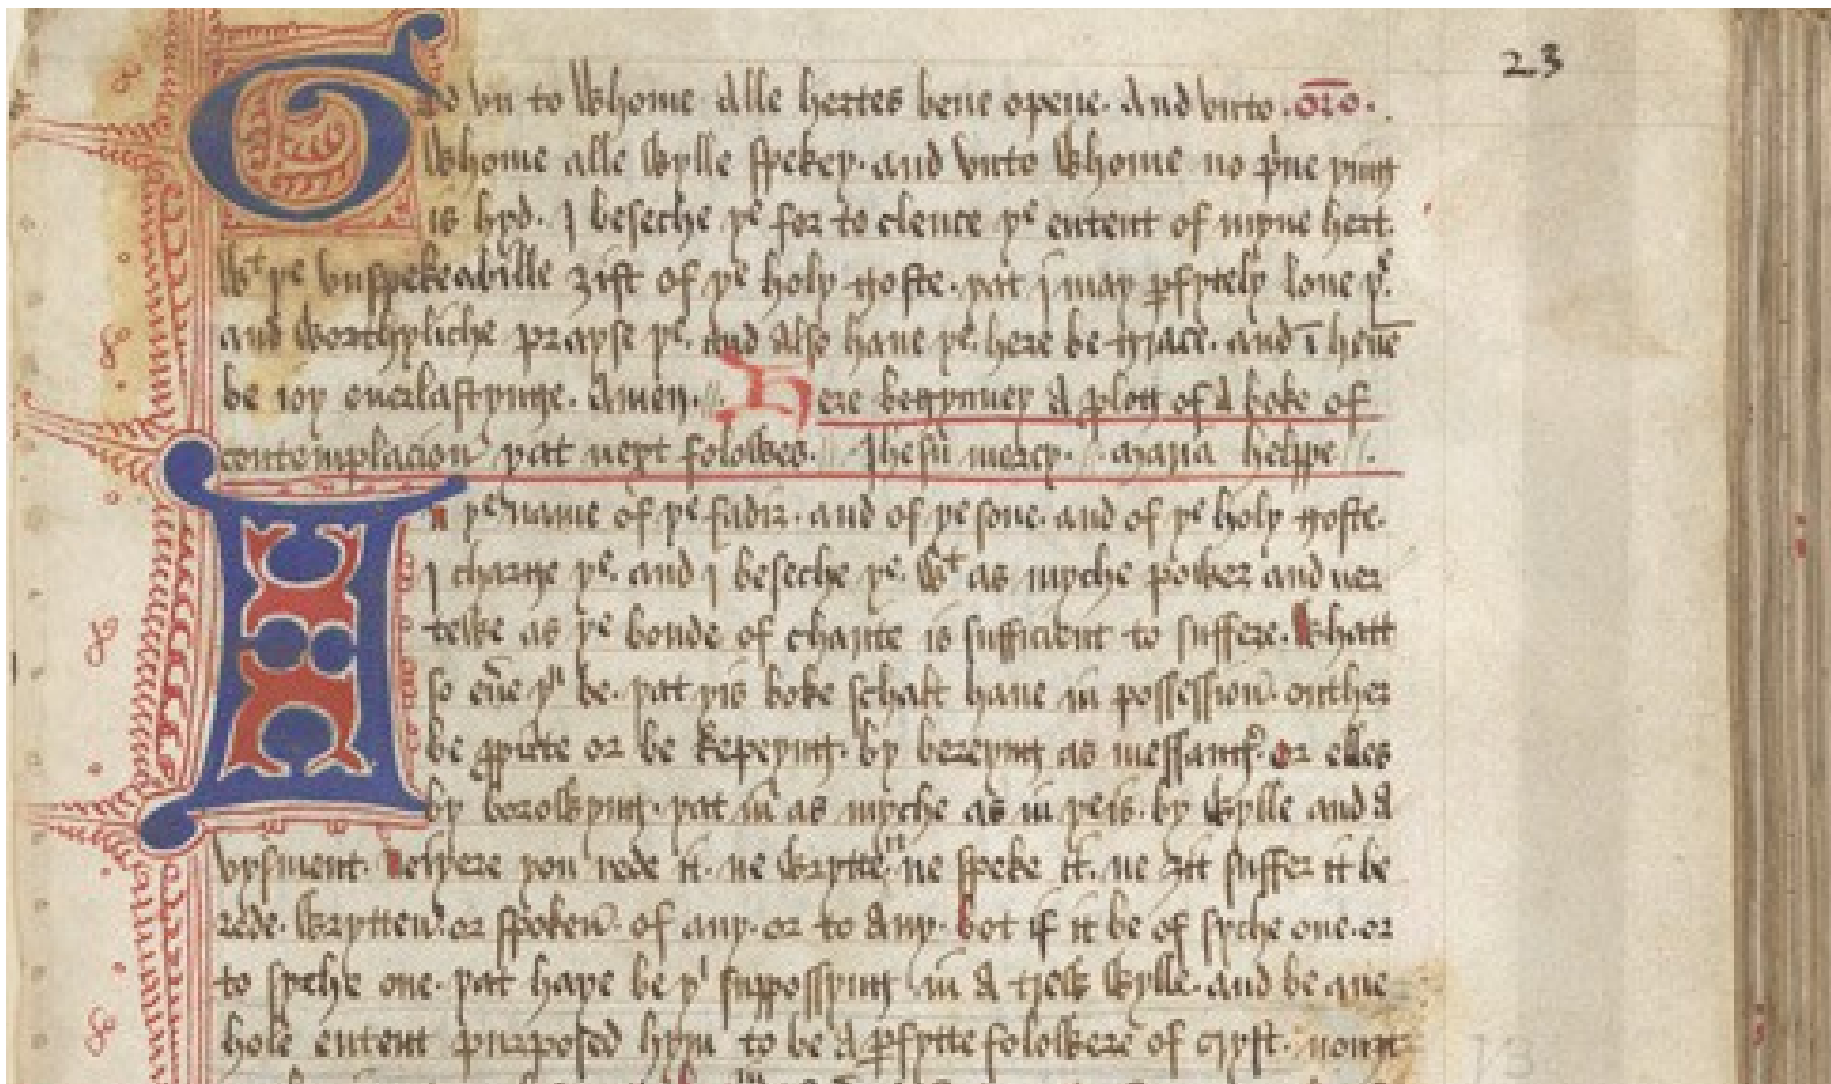 23
God vn to whome alle hertes bene opene. And vnto .oro.
whome alle wylle spekeþ. and vnto whome no p̍ue þing
is hyd. I beseche þe for to clence þe entent of myne hert.
wt þe vnspekeabille ȝift of þe holy goste. þat i may p̱fytely loue þe.
and worthyliche prayse þe. And Also haue þe. here be grace. and ī heuē
be ioy euerlastynge. Amen. // Here begynneþ A plog of A boke of
contemplacion þat next folowes. Ihesu mercy. maria helppe //.
In þe name of þe fadir. and of þe sone. and of þe holy goste.
I charge þe. and I beseche þe. wt as myche power and ver
tewe as þe bonde of charite is sufficient to suffere. Whatt
so eu̅e þu be. þat þis boke schalt haue in possession. outher
be ꝓp̍rte or be kepeyng. by bereyng as messang̉. or elles
by borowyng. þat in as myche as in þe is. by wylle and A
vysment. Neiþere þou rede it. ne wrytte it. ne speke it. ne ȝit suffer it be
rede. wrytten. or spoken. of any. or to Any. bot if it be of syche one. or
to syche one. þat haþe be þi supposyng in A trew wylle. and be ane
hole entent purposed hym to be A ꝑfytte folowere of cryst. nouȝt
13